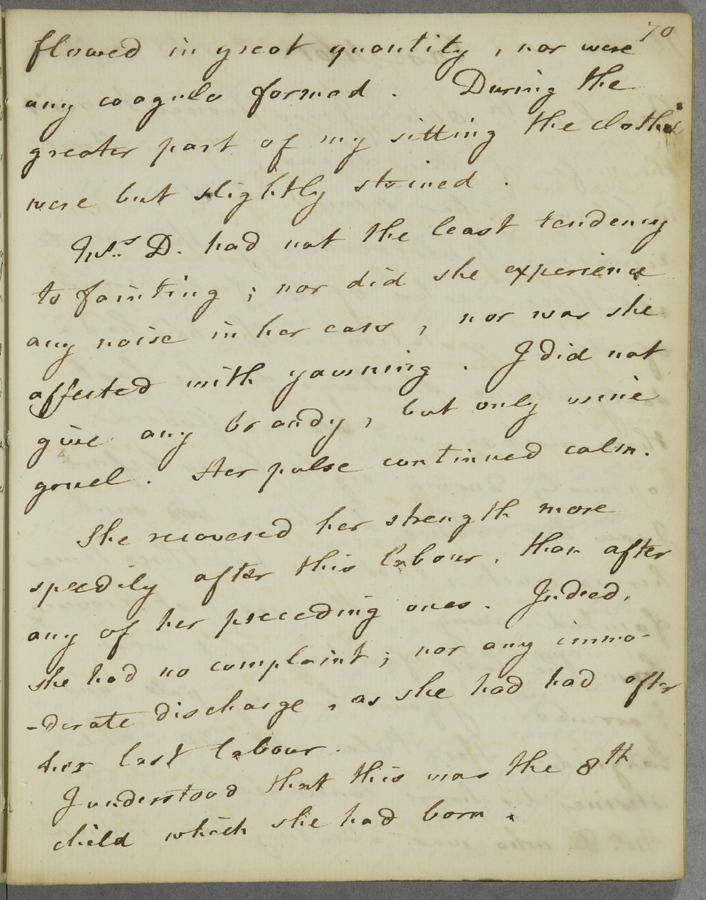 70
flowed in great quantity, nor were
any coagula formed. During the
greater part of my sitting the cloths
were but slightly stained.
Mrs. D. had not the least tendency
to fainting; nor did she experience
any noise in her ears, nor was she
affected with yawning. I did not
give any brandy, but only wine
gruel. Her pulse continued calm.
She recovered her strength more
speedily after this labour, than after
any of her preceding ones. Indeed,
she had no complaint; nor any immo-
-derate discharge, as she had had after
her last labour.
I understood that this was the 8th
child which she had born.